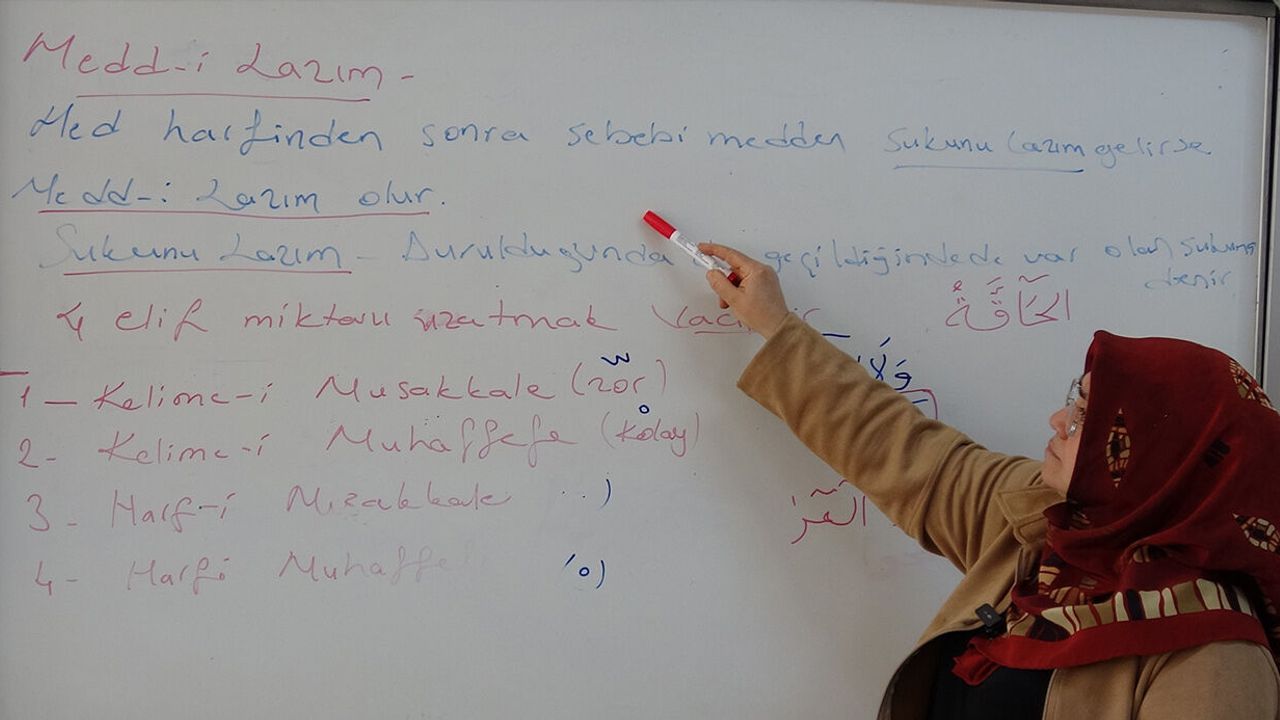 Medd-i Lazım -
Med harfinden sonra sebebi medden sukunu lazım gelirse
Medd-i Lazım olur.
Sukunu Lazım - Durulduğunda geçildiğindede var olan sukuna
denir
4 elif miktarı uzatmak
الحَاقَّةُ
وَلَا
1 - Kelime-i Musakkale (zor)
2 - Kelime-i Muhaffefe (kolay)
3 - Harf-i Misakkale ..)
4 - Harfi Muhaffe